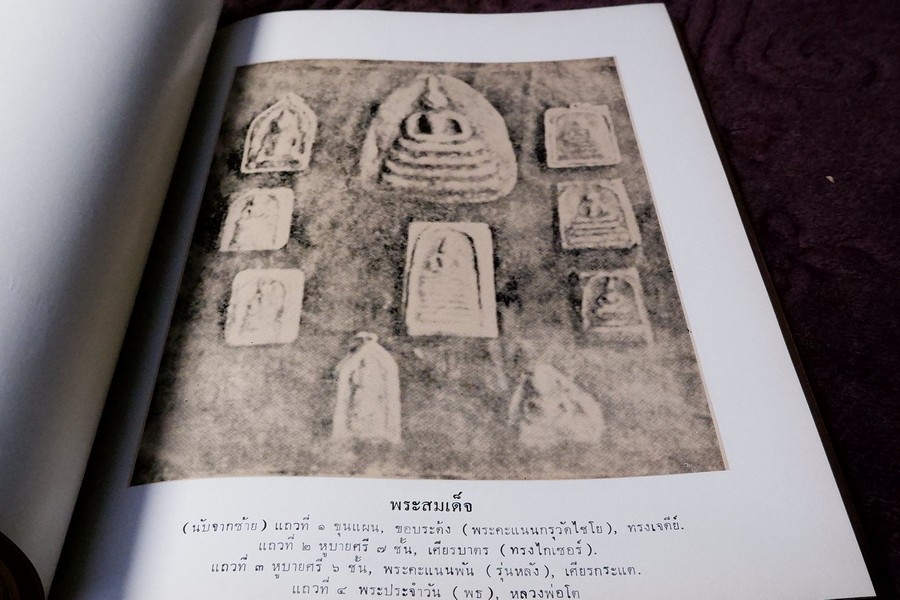 พระสมเด็จ
(นับจากซ้าย) แถวที่ ๑ ขุนแผน, ขอบระด้ง (พระคะแนนกรุวัดไชโย), ทรงเจดีย์.
แถวที่ ๒ หูบายศรี ๗ ชั้น, เศียรบาตร (ทรงไกเซอร์).
แถวที่ ๓ หูบายศรี ๖ ชั้น, พระคะแนนพัน (รุ่นหลัง), เศียรกระแต.
แถวที่ ๔ พระประจำวัน (พุธ), หลวงพ่อโต